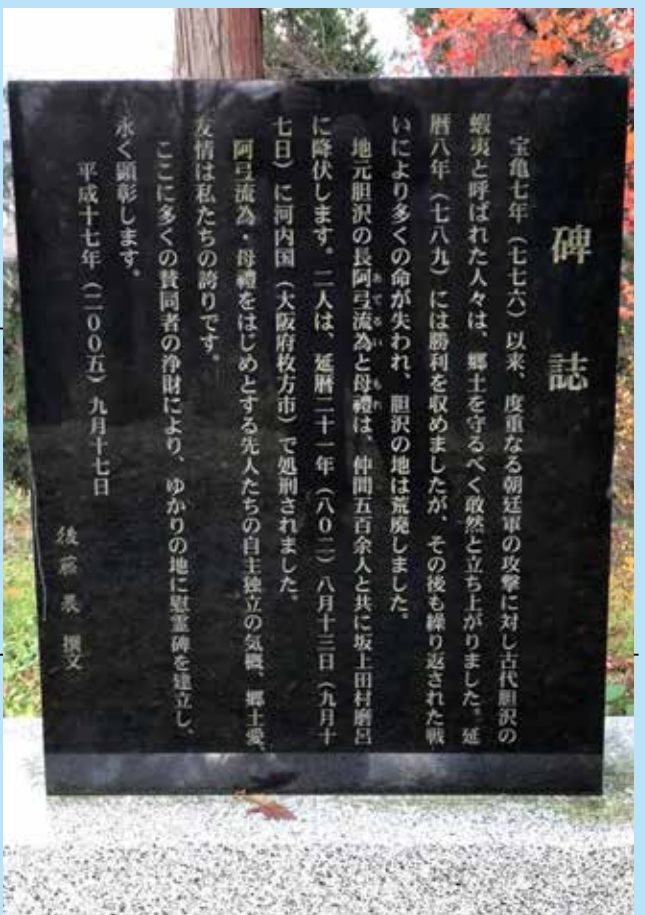 碑誌
宝亀七年（七七六）以来、度重なる朝廷軍の攻撃に対し古代胆沢の
蝦夷と呼ばれた人々は、郷土を守るべく敢然と立ち上がりました。延
暦八年（七八九）には勝利を収めましたが、その後も繰り返された戦
いにより多くの命が失われ、胆沢の地は荒廃しました。
地元胆沢の長阿弖流為と母禮は、仲間五百余人と共に坂上田村磨呂
あてるい もれ
に降伏します。二人は、延暦二十一年（八〇二）八月十三日（九月十
七日）に河内国（大阪府枚方市）で処刑されました。
阿弖流為・母禮をはじめとする先人たちの自主独立の気概、郷土愛、
友情は私たちの誇りです。
ここに多くの賛同者の浄財により、ゆかりの地に慰霊碑を建立し、
永く顕彰します。
平成十七年（二〇〇五）九月十七日
後藤晨 撰文